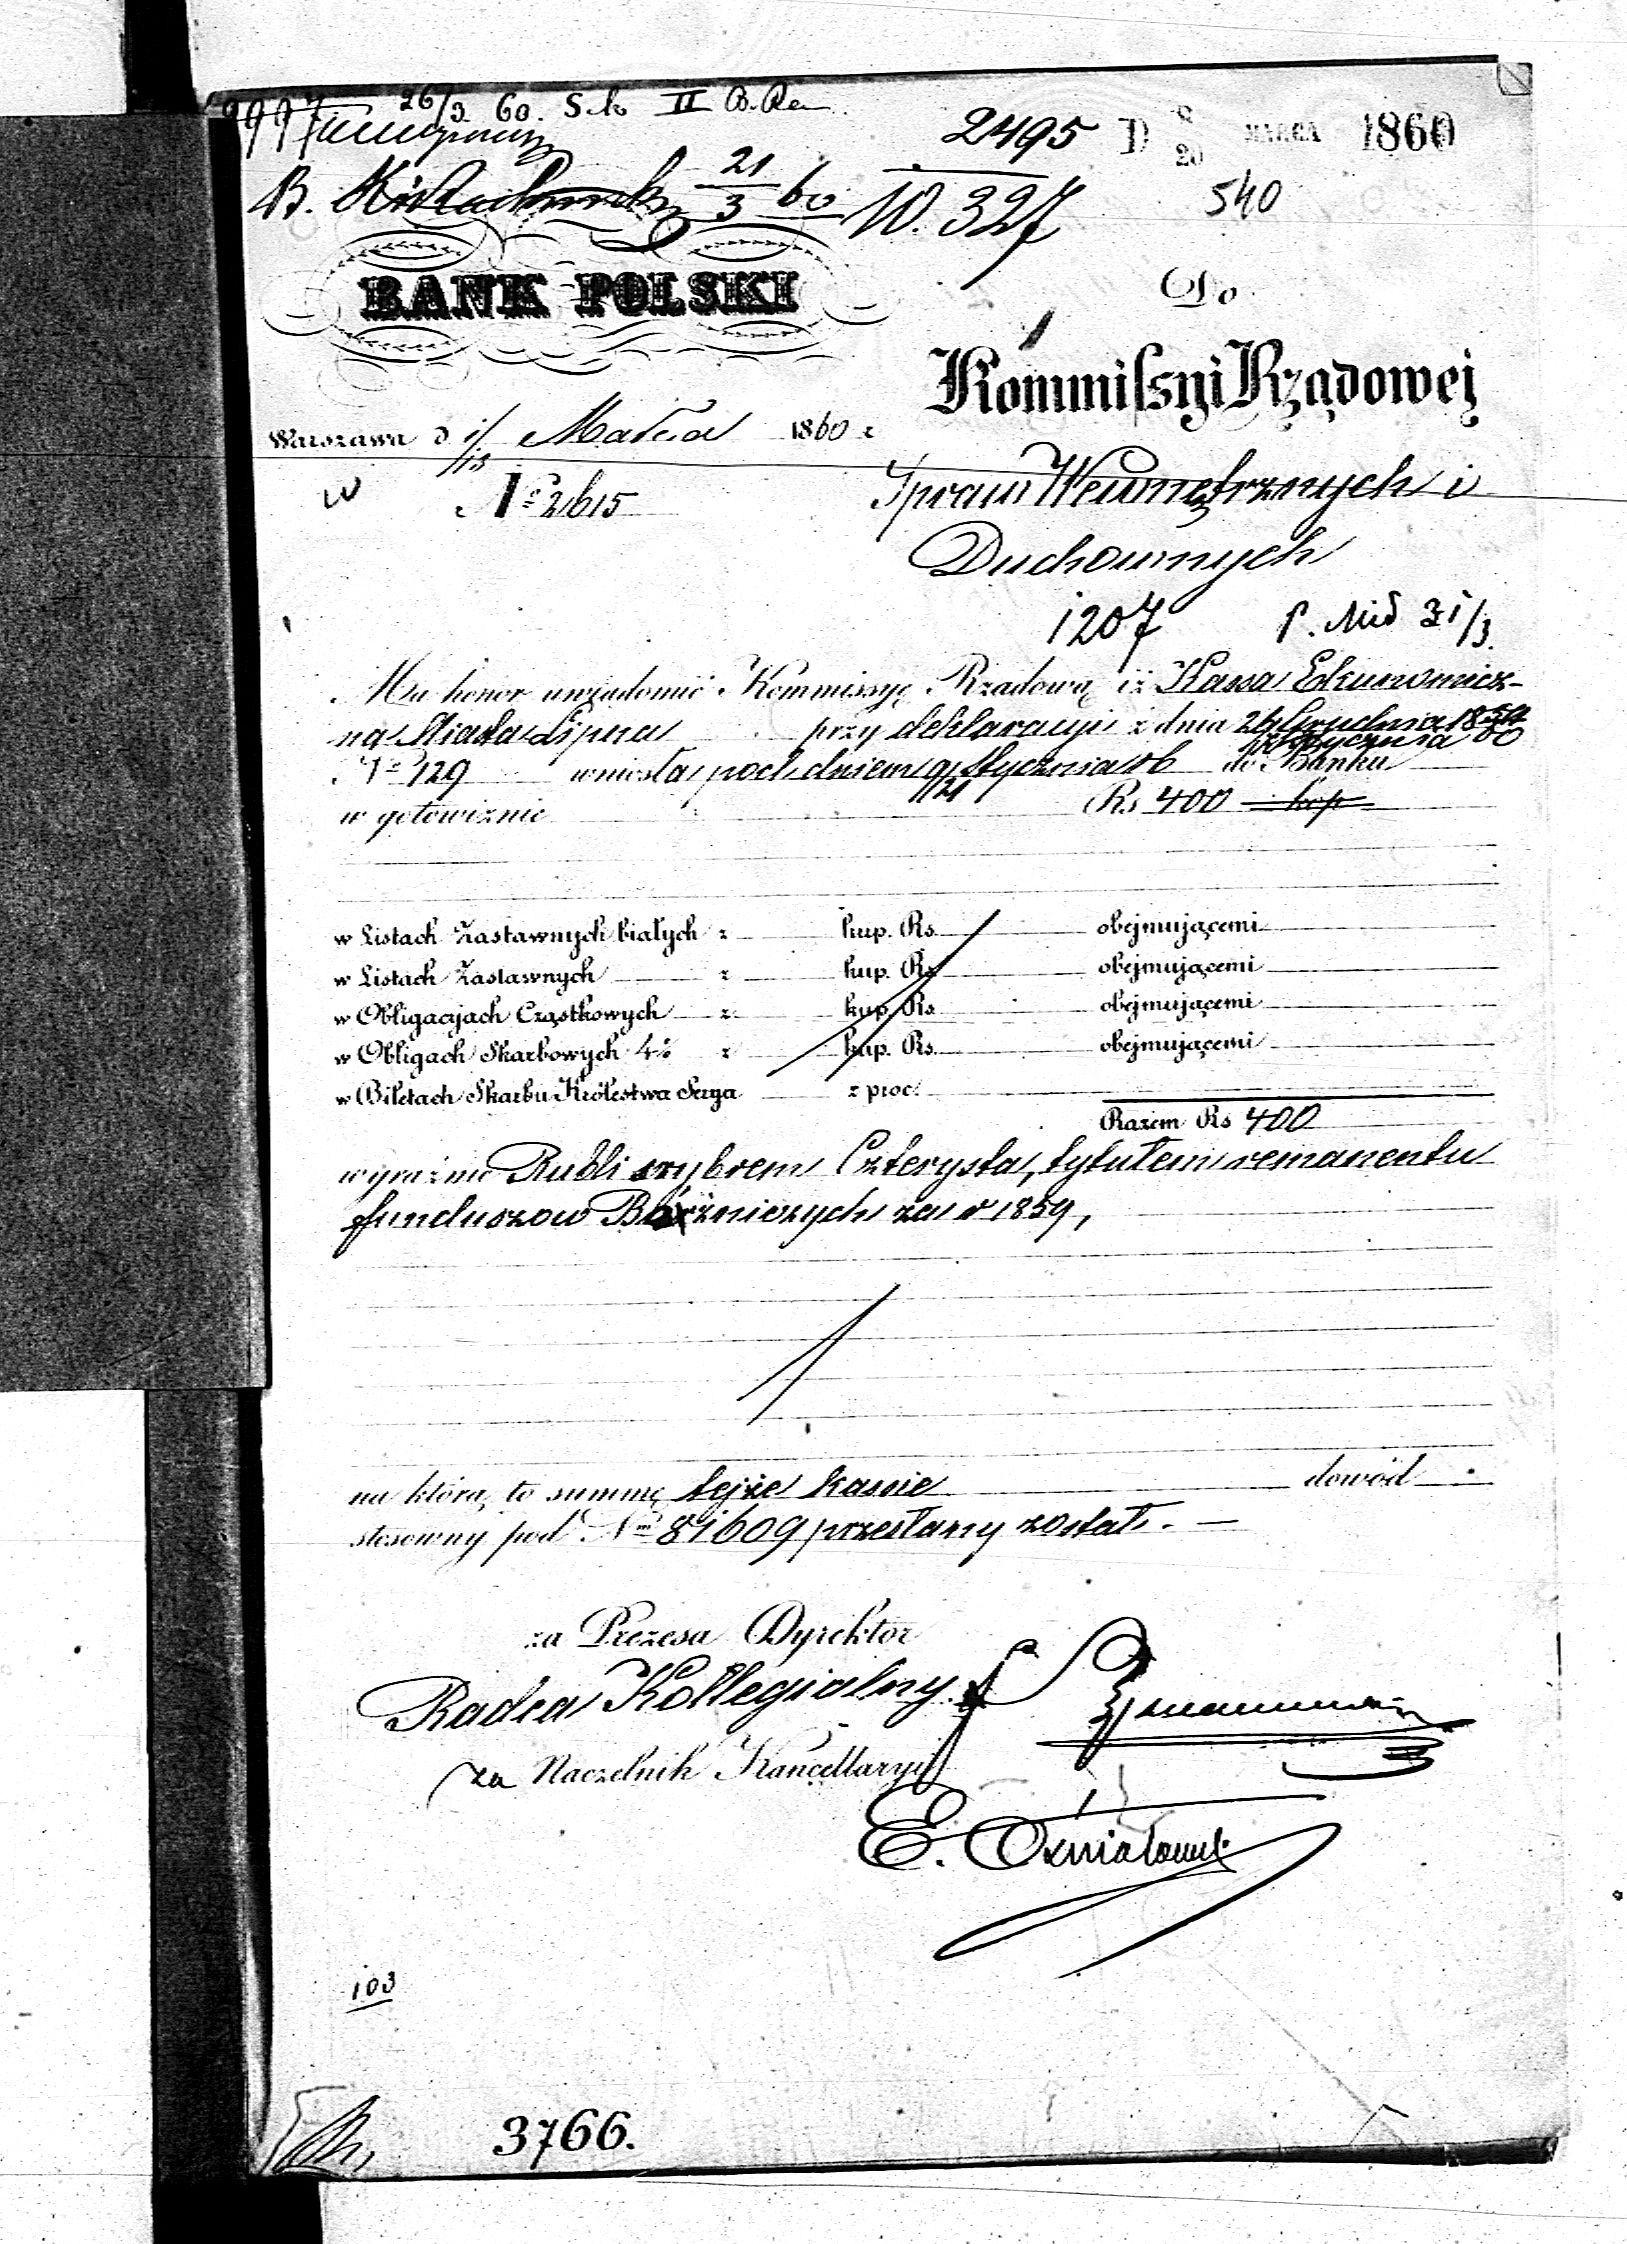 26/3 60. II
2495 D 8/20 MARCA 1860
B. 21/3 60 W. 327 540
BANK POLSKI
Do
Kommissyi Rządowej
Warszawa d 1/13 Marca 1860 r
Spraw Wewnętrznych i
w № 2615
Duchownych
1207 31/3
Ma honor uwiadomić Kommissyę Rządową iż Kassa Ekonomicz-
na Miasta Lipna przy deklaracyi z dnia Grudnia 1859 Stycznia 60
№ 129 wniosła pod dniem 9/21 Stycznia rb do Banku
w gotowiznie Rs 400 kop
w Listach Zastawnych białych z kup. Rs obejmującemi
w Listach Zastawnych z kup. Rs obejmującemi
w Obligacjach Cząstkowych z kup. Rs obejmującemi
w Obligach Skarbowych 4% z kup. Rs obejmującemi
w Biletach Skarbu Królestwa Serya z proc.
Razem Rs 400
wyraźnie Rubli srybrem Czterysta, tytułem remanentu
funduszow Bóżniczych za r 1859,
na którą to summę tejże kassie dowód
stosowny pod Nm 81609 przesłany został. —
za Prezesa Dyrektor
Radca Kollegialny
za Naczelnik Kancellaryi
103
3766.